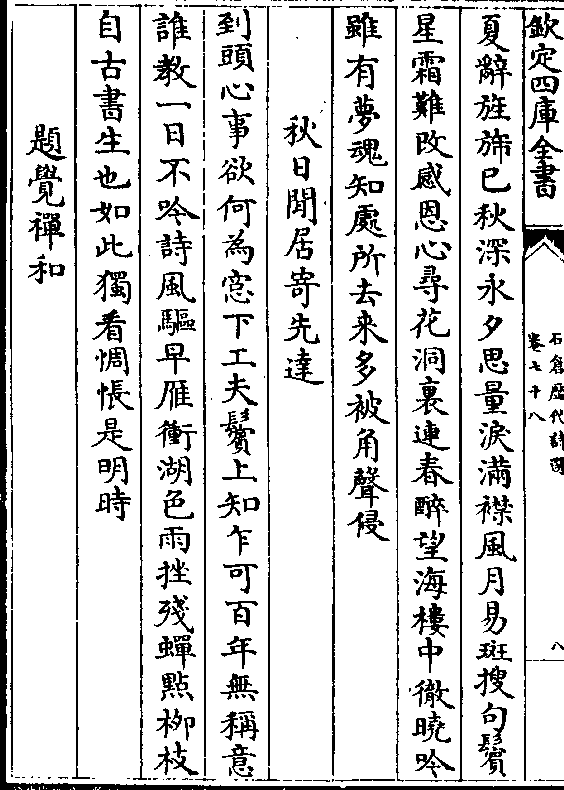 欽定四庫全書
石倉歷代詩選
卷七十八
八
夏辭旌斾已秋深永夕思量淚滿襟風月易斑搜句鬢
星霜難改感恩心尋花洞裏連春醉望海樓中徹曉吟
雖有夢魂知處所去来多被角聲侵
秋日閒居寄先達
到頭心事欲何為窓下工夫鬢上知乍可百年無稱意
誰教一日不吟詩風驅早雁衝湖色雨挫殘蟬㸃栁枝
自古書生也如此獨看惆悵是明時
題覺禪和